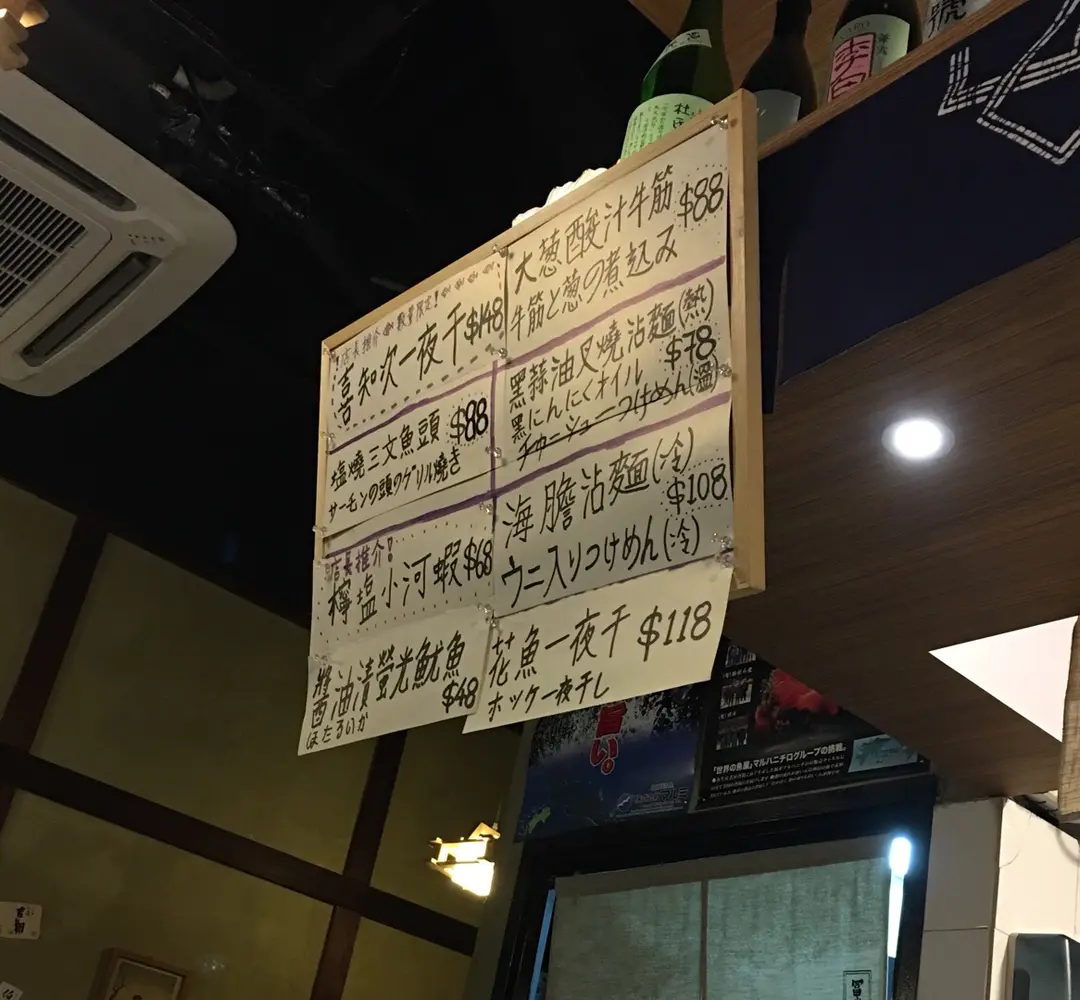 店長推介 數量限定!
喜知次一夜干 $148
塩燒三文魚頭 $88
サーモンの頭のグリル焼き
店長推介!
檸塩小河蝦 $68
醬油漬螢光魷魚
$48
ほたるいか
大葱酸汁牛筋 $88
牛筋と葱の煮込み
黑蒜油叉燒沾麵(熱)
$78
黑にんにくオイル
チャーシューつけめん(温)
海膽沾麵(冷)
$108
ウニ入りつけめん(冷)
花魚一夜干 $118
ホッケ一夜干し
旨い。
「世界の魚屋」マルハニチログループの挑戦。